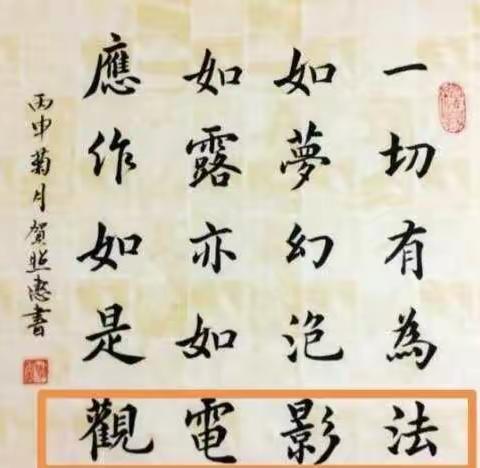 一切有為法
如夢幻泡影
如露亦如電
應作如是觀
丙申菊月賀熙惠書